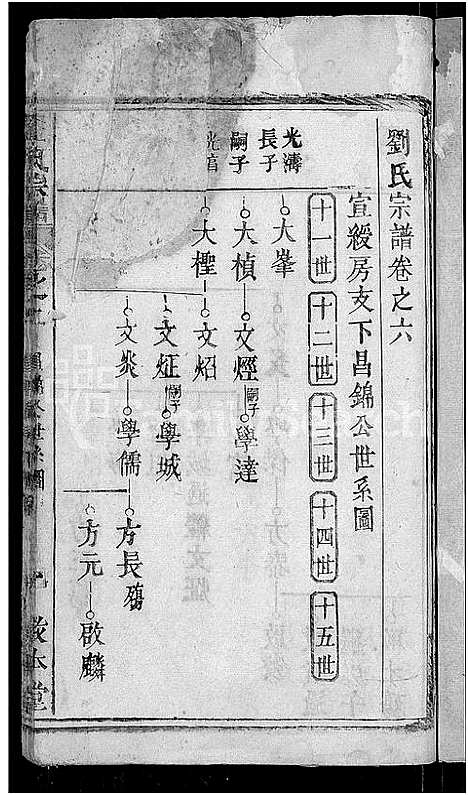 劉氏宗譜卷之六
宣緩房支下昌錦公世系圖
十一世 十二世 十三世 十四世 十五世
光濤
長子 大峯
嗣子 大楨 文煙 嗣子 學達
大檉 文炤
文炡 嗣子 學城
文炎 學儒 方長 殤
方元 啟麟